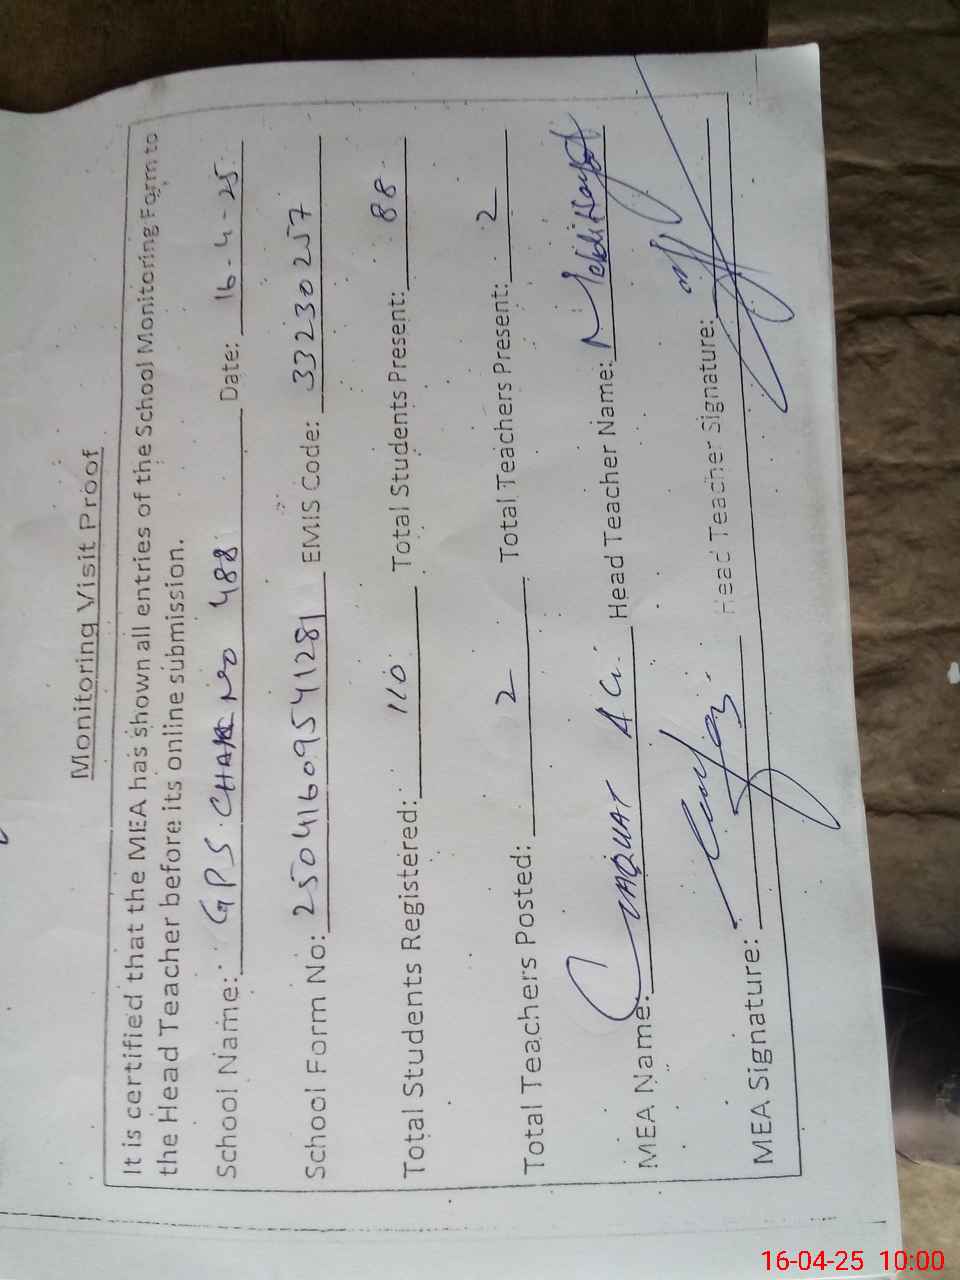 Monitoring Visit Proof
It is certified that the MEA has shown all entries of the School Monitoring Form to
the Head Teacher before its online submission.
School Name: GPS. CHAK NO 488 Date: 16-4-25
School Form No: 25041609541281 EMIS Code: 33230257
Total Students Registered: 110 Total Students Present: 88
Total Teachers Posted: 2 Total Teachers Present: 2
MEA Name: LIAQUAT ALI Head Teacher Name:
MEA Signature: Head Teacher Signature:
16-04-25 10:00